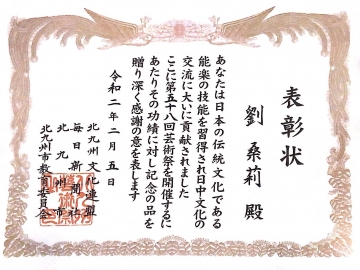 表彰状
劉桑莉 殿
あなたは日本の伝統文化である
能楽の技能を習得され日中文化の
交流に大いに貢献されました
ここに第五十八回芸術祭を開催するに
あたりその功績に対し記念の品を
贈り深く感謝の意を表します
令和二年二月五日
北九州文化連盟
毎日新聞社
北九州市
北九州市教育委員会